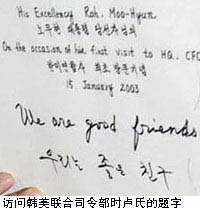 His Excellency Roh, Moo-Hyun
노무현 대통령 당선자님의
On the occasion of his first visit to HQ, CFC
한미연합사 최초 방문기념
15 January 2003
We are good friends
우리는 좋은 친구
访问韩美联合司令部时卢氏的题字